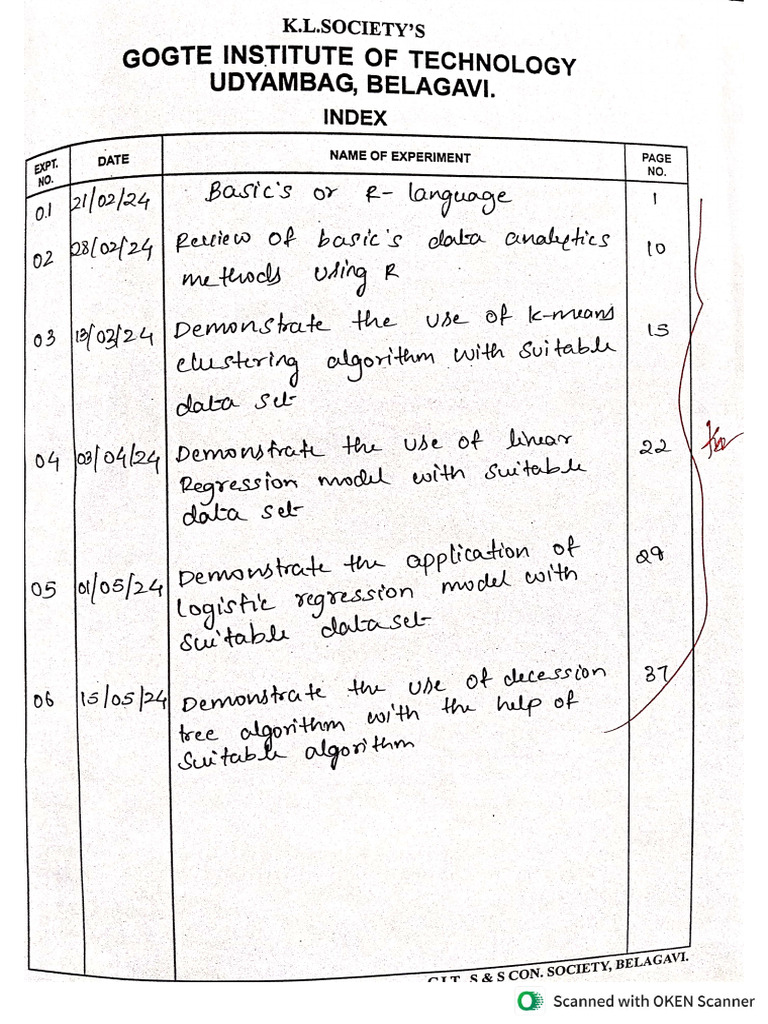 K.L.SOCIETY'S
GOGTE INSTITUTE OF TECHNOLOGY
UDYAMBAG, BELAGAVI.
INDEX
EXPT. NO. DATE NAME OF EXPERIMENT PAGE NO.
0.1 21/02/24 Basic's or R- language 1
02 28/02/24 Review of basic's data analytics 10
methods using R
03 13/03/24 Demonstrate the use of k-means 15
clustering algorithm with suitable
data set
04 03/04/24 Demonstrate the use of linear 22
Regression model with suitable
data set
05 01/05/24 Demonstrate the application of 29
Logistic regression model with
suitable dataset
06 15/05/24 Demonstrate the use of decession 37
tree algorithm with the help of
suitable algorithm
S & S CON. SOCIETY, BELAGAVI.
Scanned with OKEN Scanner